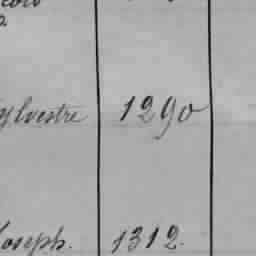 ylvestre 1290
Joseph. 1312.